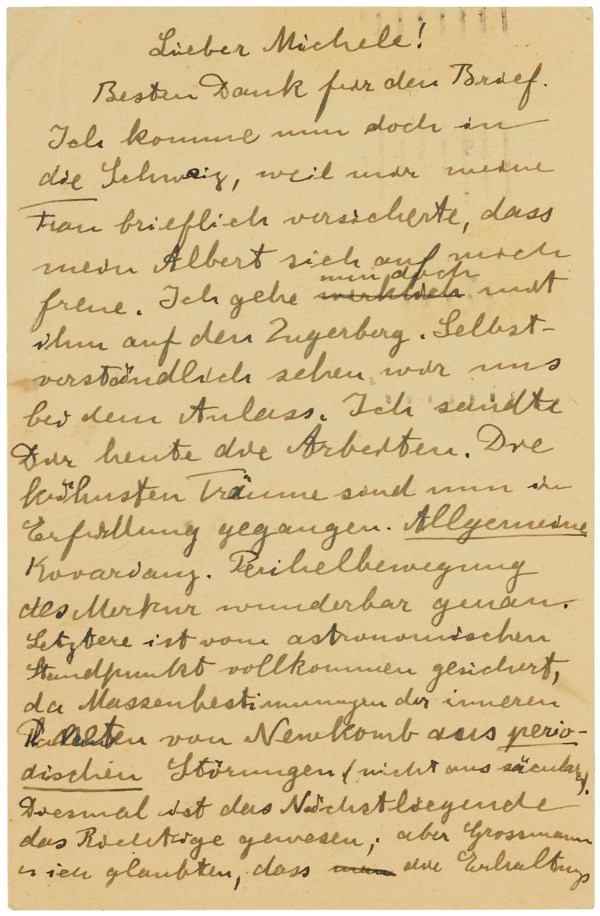 Lieber Michele!
Besten Dank für den Brief.
Ich komme nun doch in
die Schweiz, weil mir meine
Frau brieflich versicherte, dass
mein Albert sich auf mich
freue. Ich gehe nun doch mit
ihm auf den Zugerberg. Selbst-
verständlich sehen wir uns
bei dem Anlass. Ich sandte
Dir heute die Arbeiten. Die
kühnsten Träume sind nun in
Erfüllung gegangen. Allgemeine
Kovarianz. Perihelbewegung
des Merkur wunderbar genau.
Letztere ist vom astronomischen
Standpunkt vollkommen gesichert,
da Massenbestimmungen der inneren
Planeten von Newkomb aus perio-
dischen Störungen (nicht aus säcularen).
Diesmal ist das Nächstliegende
das Richtige gewesen; aber Grossmann
u ich glaubten, dass die Erhaltungs